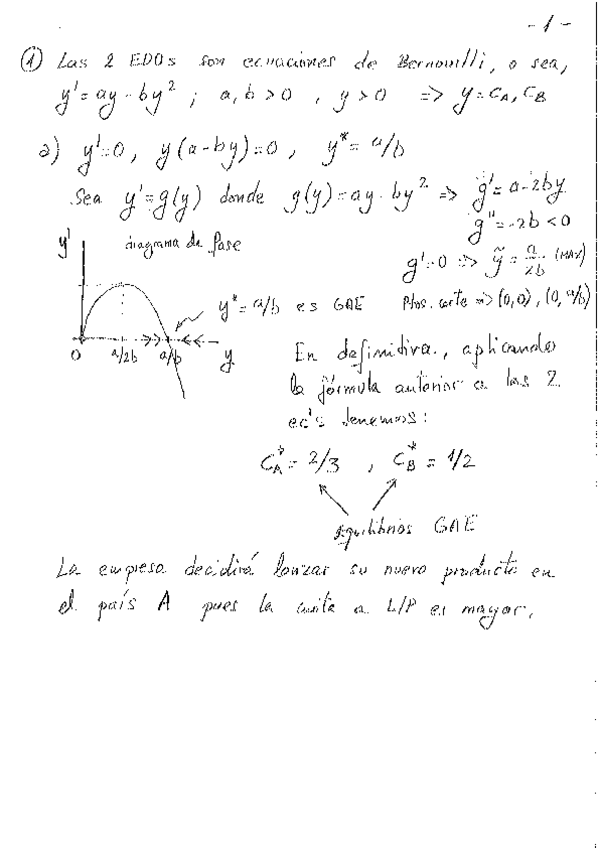 - 1 -
① Las 2 EDOs son ecuaciones de Bernouilli, o sea,
y' = ay - by² ; a, b > 0 , y > 0 => y = C_A, C_B
a) y' = 0, y(a-by) = 0, y* = a/b
Sea y' = g(y) donde g(y) = ay - by² => g' = a - 2by
g'' = -2b < 0
g' = 0 => ỹ = a/2b (MAX)
y' diagrama de fase
y* = a/b es GAE Ptos. corte => (0,0), (0, a/b)
0 a/2b a/b y
En definitiva, aplicando
la fórmula anterior a las 2
ec's tenemos:
C_A* = 2/3 , C_B* = 1/2
equilibrios GAE
La empresa decidirá lanzar su nuevo producto en
el país A pues la cuota a L/P es mayor.